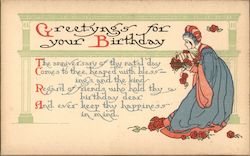 Greetyngs for
your Birthday
The anniversary of thy natal day
Comes to thee, heaped with bless-
ings and the kind
Regard of friends who hold thy
birthday dear
And ever keep thy happiness
in mind.